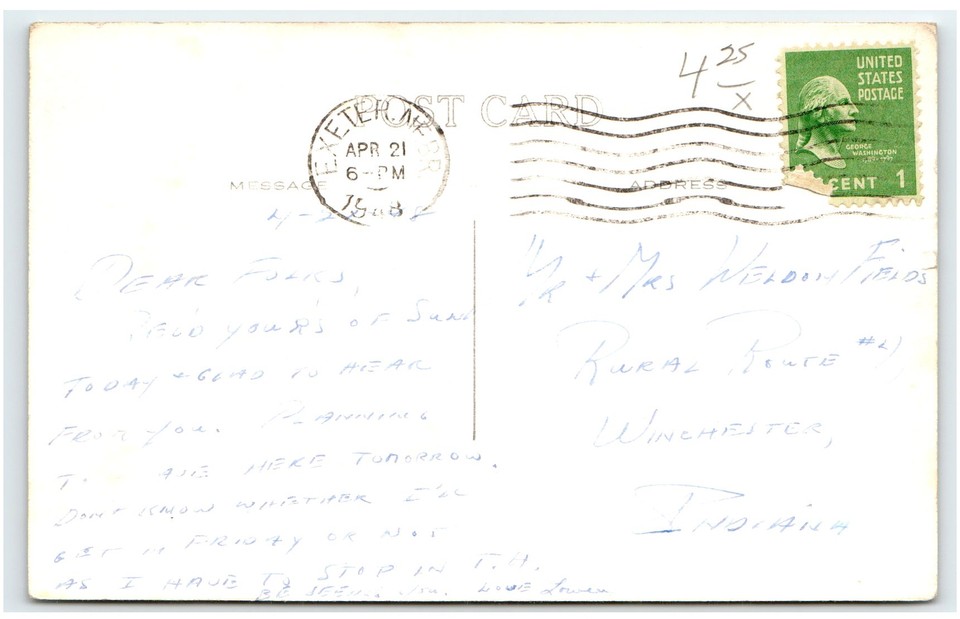 4 25
x
UNITED
STATES
POSTAGE
GEORGE
WASHINGTON
CENT 1
POST CARD
EXETER, NEBR
APR 21
6-PM
MESSAGE
ADDRESS
DEAR FOLKS,
REC'D YOUR'S OF SUN
TODAY + GLAD TO HEAR
FROM YOU. PLANNING
HERE TOMORROW.
DON'T KNOW WHETHER I'LL
GET IN FRIDAY OR NOT
AS I HAVE TO STOP IN T.H.
BE SEEING YOU. LOVE
MR + MRS WELDON FIELDS
RURAL ROUTE #4
WINCHESTER,
INDIANA